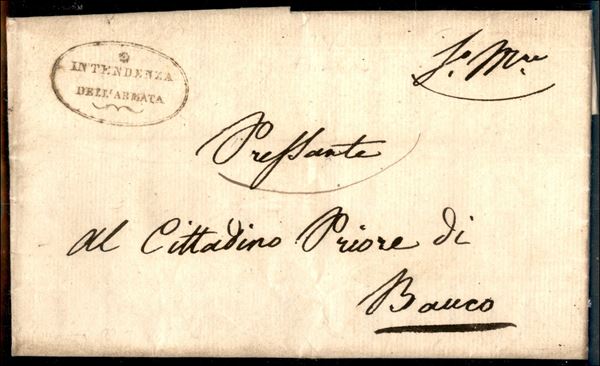 INTENDENZA
DELL'ARMATA
Sº. Mre
Pressante
Al Cittadino Priore di
Bauco